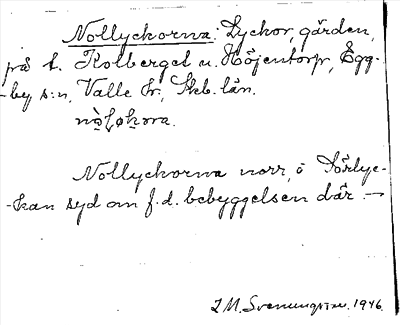 Nollyckorna: Lyckor, gården,
på t. Kolberget u. Höjentorp, Egg-
-by s:n, Valle hr, Skb. län.
Nollyckorna norr, ö Sörlyc-
-kan syd om f.d. bebyggelsen där. —
I. M. Svenungsson. 1946.